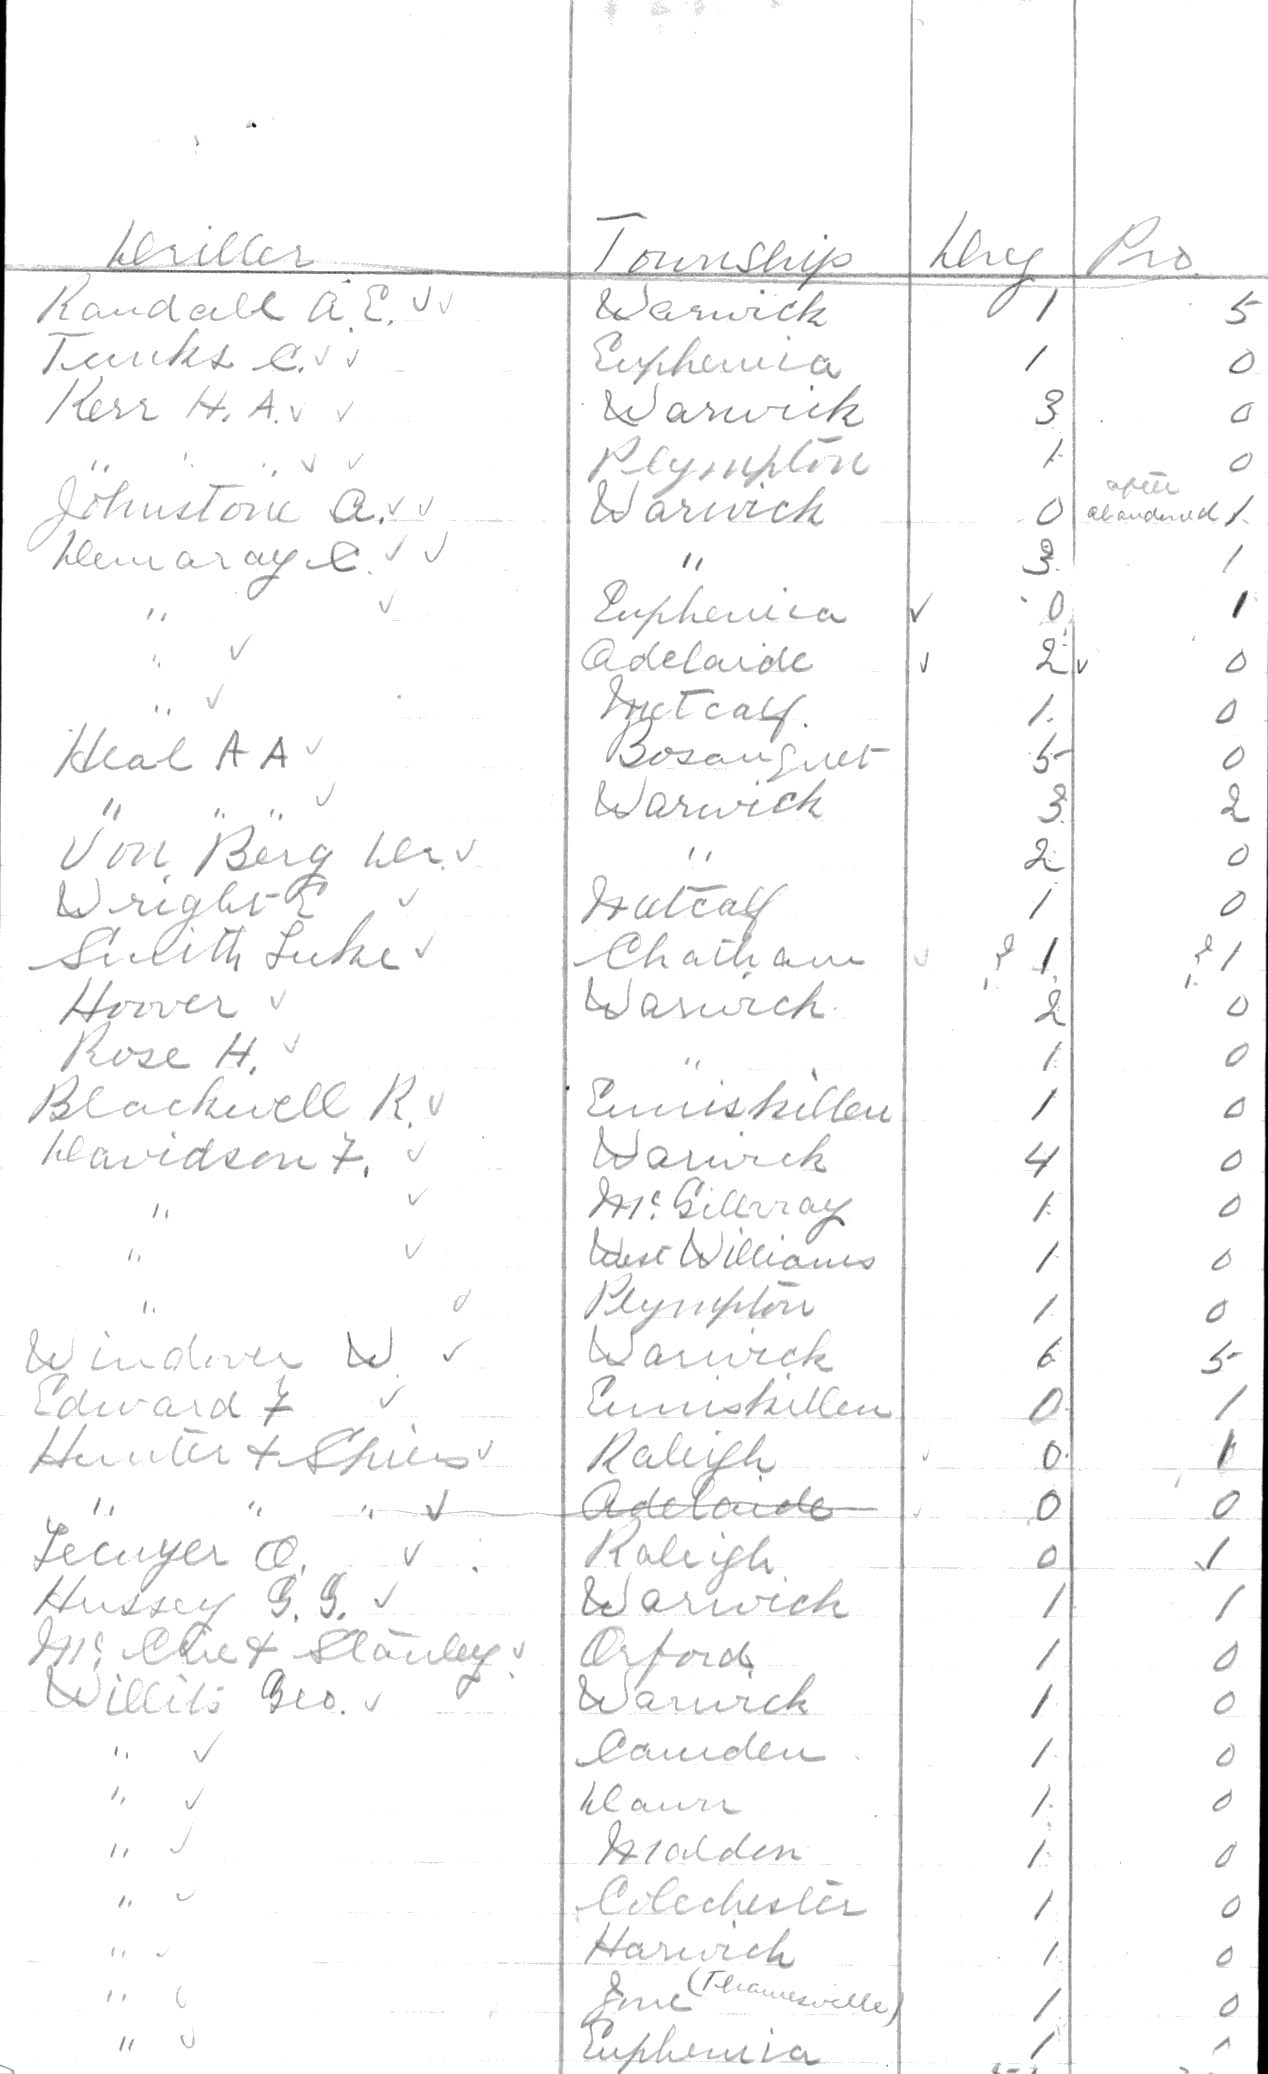 Driller Township Dry Pro.
Randall A. E. ✓✓ Warwick 1 5
Tunks C. ✓✓ Euphemia 1 0
Kerr H. A. ✓ ✓ Warwick 3 0
" " " ✓ ✓ Plympton 1 0
Johnstone A. ✓✓ Warwick 0 after abandoned 1
Demaray C. ✓ ✓ " 3 1
" ✓ Euphemia ✓ 0 1
" ✓ Adelaide ✓ 2 ✓ 0
" ✓ Metcalf. 1 0
Heal A A ✓ Bosanquet 5 0
" " " ✓ Warwick 3 2
Von Berg Dr. ✓ " 2 0
Wright E ✓ Metcalf 1 0
Smith Luke ✓ Chatham ✓ ? 1 ? 1
Hoover ✓ Warwick 2 0
Rose H. ✓ " 1 0
Blackwell R. ✓ Enniskillen 1 0
Davidson F. ✓ Warwick 4 0
" ✓ Mc. Gillvray 1 0
" ✓ West Williams 1 0
" ✓ Plympton 1 0
Windover W. ✓ Warwick 6 5
Edward F ✓ Enniskillen 0 1
Hunter + ✓ Raleigh ✓ 0 1
" " " ✓ Adelaide ✓ 0 0
Lecuyer O. ✓ Raleigh 0 1
Hussey G. G. ✓ Warwick 1 1
Mc. + Stanley ✓ Orford 1 0
Willits Geo. ✓ Warwick 1 0
" ✓ Camden 1 0
" ✓ Dawn 1 0
" ✓ Malden 1 0
" ✓ Colchester 1 0
" ✓ Harwich 1 0
" ✓ Zone (Thamesville) 1 0
" ✓ Euphemia 1